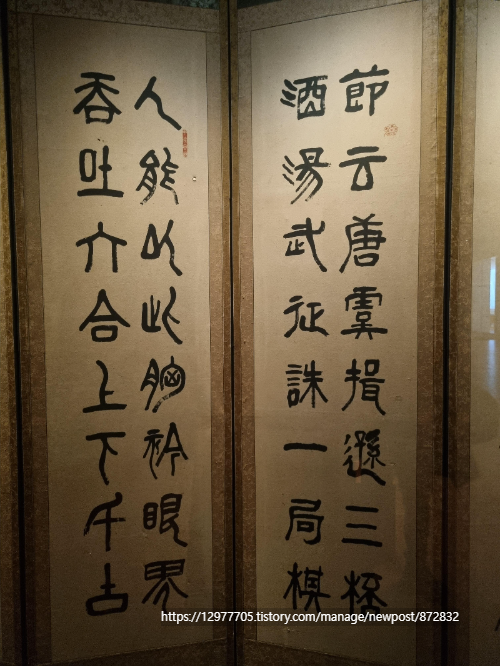 節云唐虞揖遜三桮
酒湯武征誅一局棋
人能以此胸衿眼界
吞吐六合上下千古
https://12977705.tistory.com/manage/newpost/872832